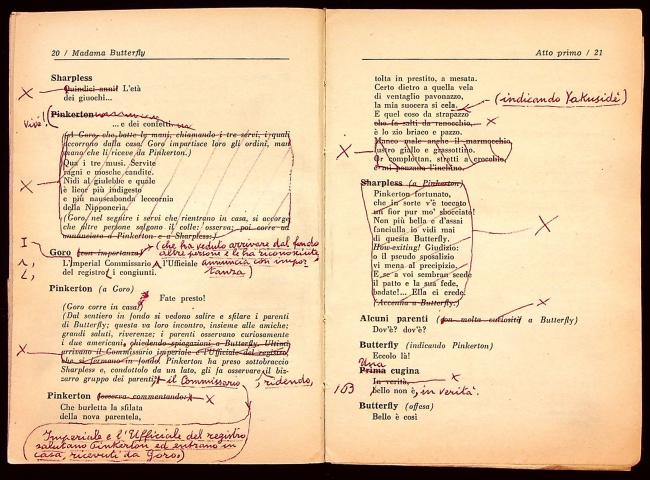 20 / Madama Butterfly
Sharpless
Quindici anni! L'età
dei giuochi...
Pinkerton
vivo!
...e dei confetti.
(A Goro, che batte le mani, chiamando i tre servi, i quali
accorrono dalla casa. Goro impartisce loro gli ordini, man
mano che li riceve da Pinkerton.)
Qua i tre musi. Servite
ragni e mosche candite.
Nidi al giulebbe e quale
è licor più indigesto
e più nauseabonda leccornia
della Nipponeria.
(Goro, nel seguire i servi che rientrano in casa, si accorge
che altre persone salgono il colle: osserva; poi corre ad
annunciare a Pinkerton e a Sharpless.)
Goro (con importanza) (che ha veduto arrivare dal fondo
altre persone e le ha riconosciute
L'Imperial Commissario, l'Ufficiale annuncia con impor-
del registro, i congiunti. tanza)
Pinkerton (a Goro)
Fate presto!
(Goro corre in casa)
(Dal sentiero in fondo si vedono salire e sfilare i parenti
di Butterfly; questa va loro incontro, insieme alle amiche:
grandi saluti, riverenze; i parenti osservano curiosamente
i due americani, chiedendo spiegazioni a Butterfly. Ultimi
arrivano il Commissario imperiale e l'Ufficiale del registro,
che si fermano in fondo. Pinkerton ha preso sottobraccio
Sharpless e, condottolo da un lato, gli fa osservare il biz-
zarro gruppo dei parenti; il Commissario , ridendo,
Pinkerton (osserva commentando)
Che burletta la sfilata
della nova parentela,
Imperiale e l'Ufficiale del registro
salutano Pinkerton ed entrano in
casa, ricevuti da Goro.)
Atto primo / 21
tolta in prestito, a mesata.
Certo dietro a quella vela
di ventaglio pavonazzo,
la mia suocera si cela.
(indicando Yakusidé)
E quel coso da strapazzo
che fa salti da ranocchio,
è lo zio briaco e pazzo.
Manco male anche il marmocchio
lustro giallo e grassottino.
Or complottan, stretti a crocchio,
e mi ponzano l'inchino.
Sharpless (a Pinkerton)
Pinkerton fortunato,
che in sorte v'è toccato
un fior pur mo' sbocciato!
Non più bella e d'assai
fanciulla io vidi mai
di questa Butterfly.
How exiting! Giudizio:
o il pseudo sposalizio
vi mena al precipizio.
E se a voi sembran scede
il patto e la sua fede,
badate!... Ella ci crede.
(Accenna a Butterfly.)
Alcuni parenti (con molta curiosità a Butterfly)
Dov'è? dov'è?
Butterfly (indicando Pinkerton)
Eccolo là!
Una
Prima cugina
In verità,
103 bello non è, in verità.
Butterfly (offesa)
Bello è così